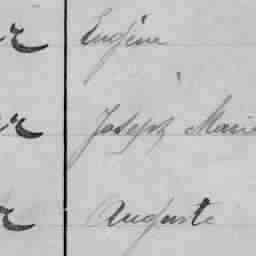 Eugène
Joseph Marie
Auguste